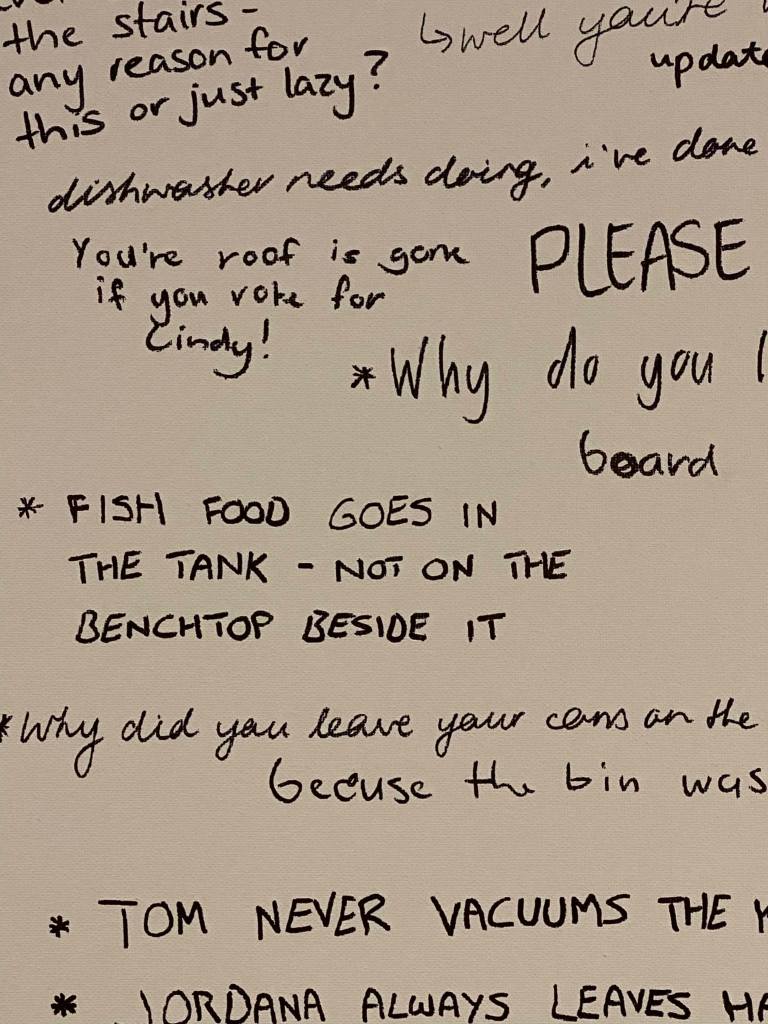 the stairs -
any reason for
this or just lazy?
↳well you're
update
dishwasher needs doing, i've done
You're roof is gone
if you vote for
Cindy!
PLEASE
*Why do you
board
* FISH FOOD GOES IN
THE TANK - NOT ON THE
BENCHTOP BESIDE IT
*Why did you leave your cans on the
becuse the bin was
* TOM NEVER VACUUMS THE
* JORDANA ALWAYS LEAVES HA